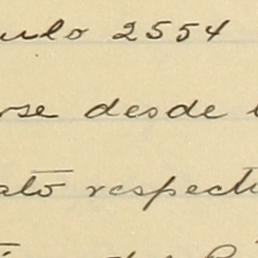 ulo 2554
rse desde
ato respecti